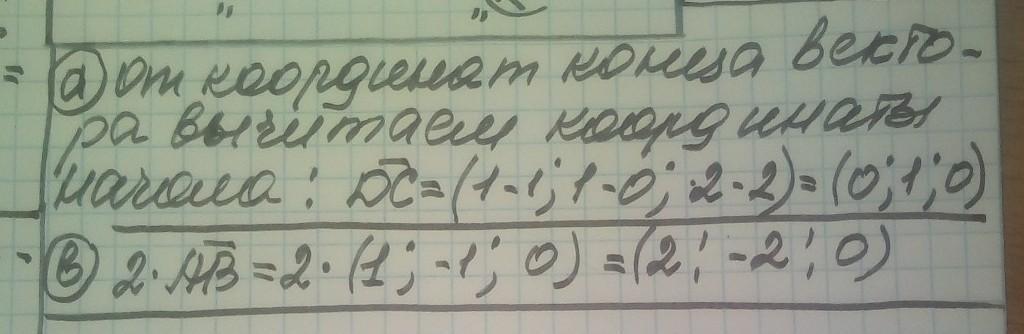 а) от координат конца векто-
ра вычитаем координаты
начала: DC = (1-1; 1-0; 2-2) = (0; 1; 0)
в) 2·AB = 2·(1; -1; 0) = (2; -2; 0)